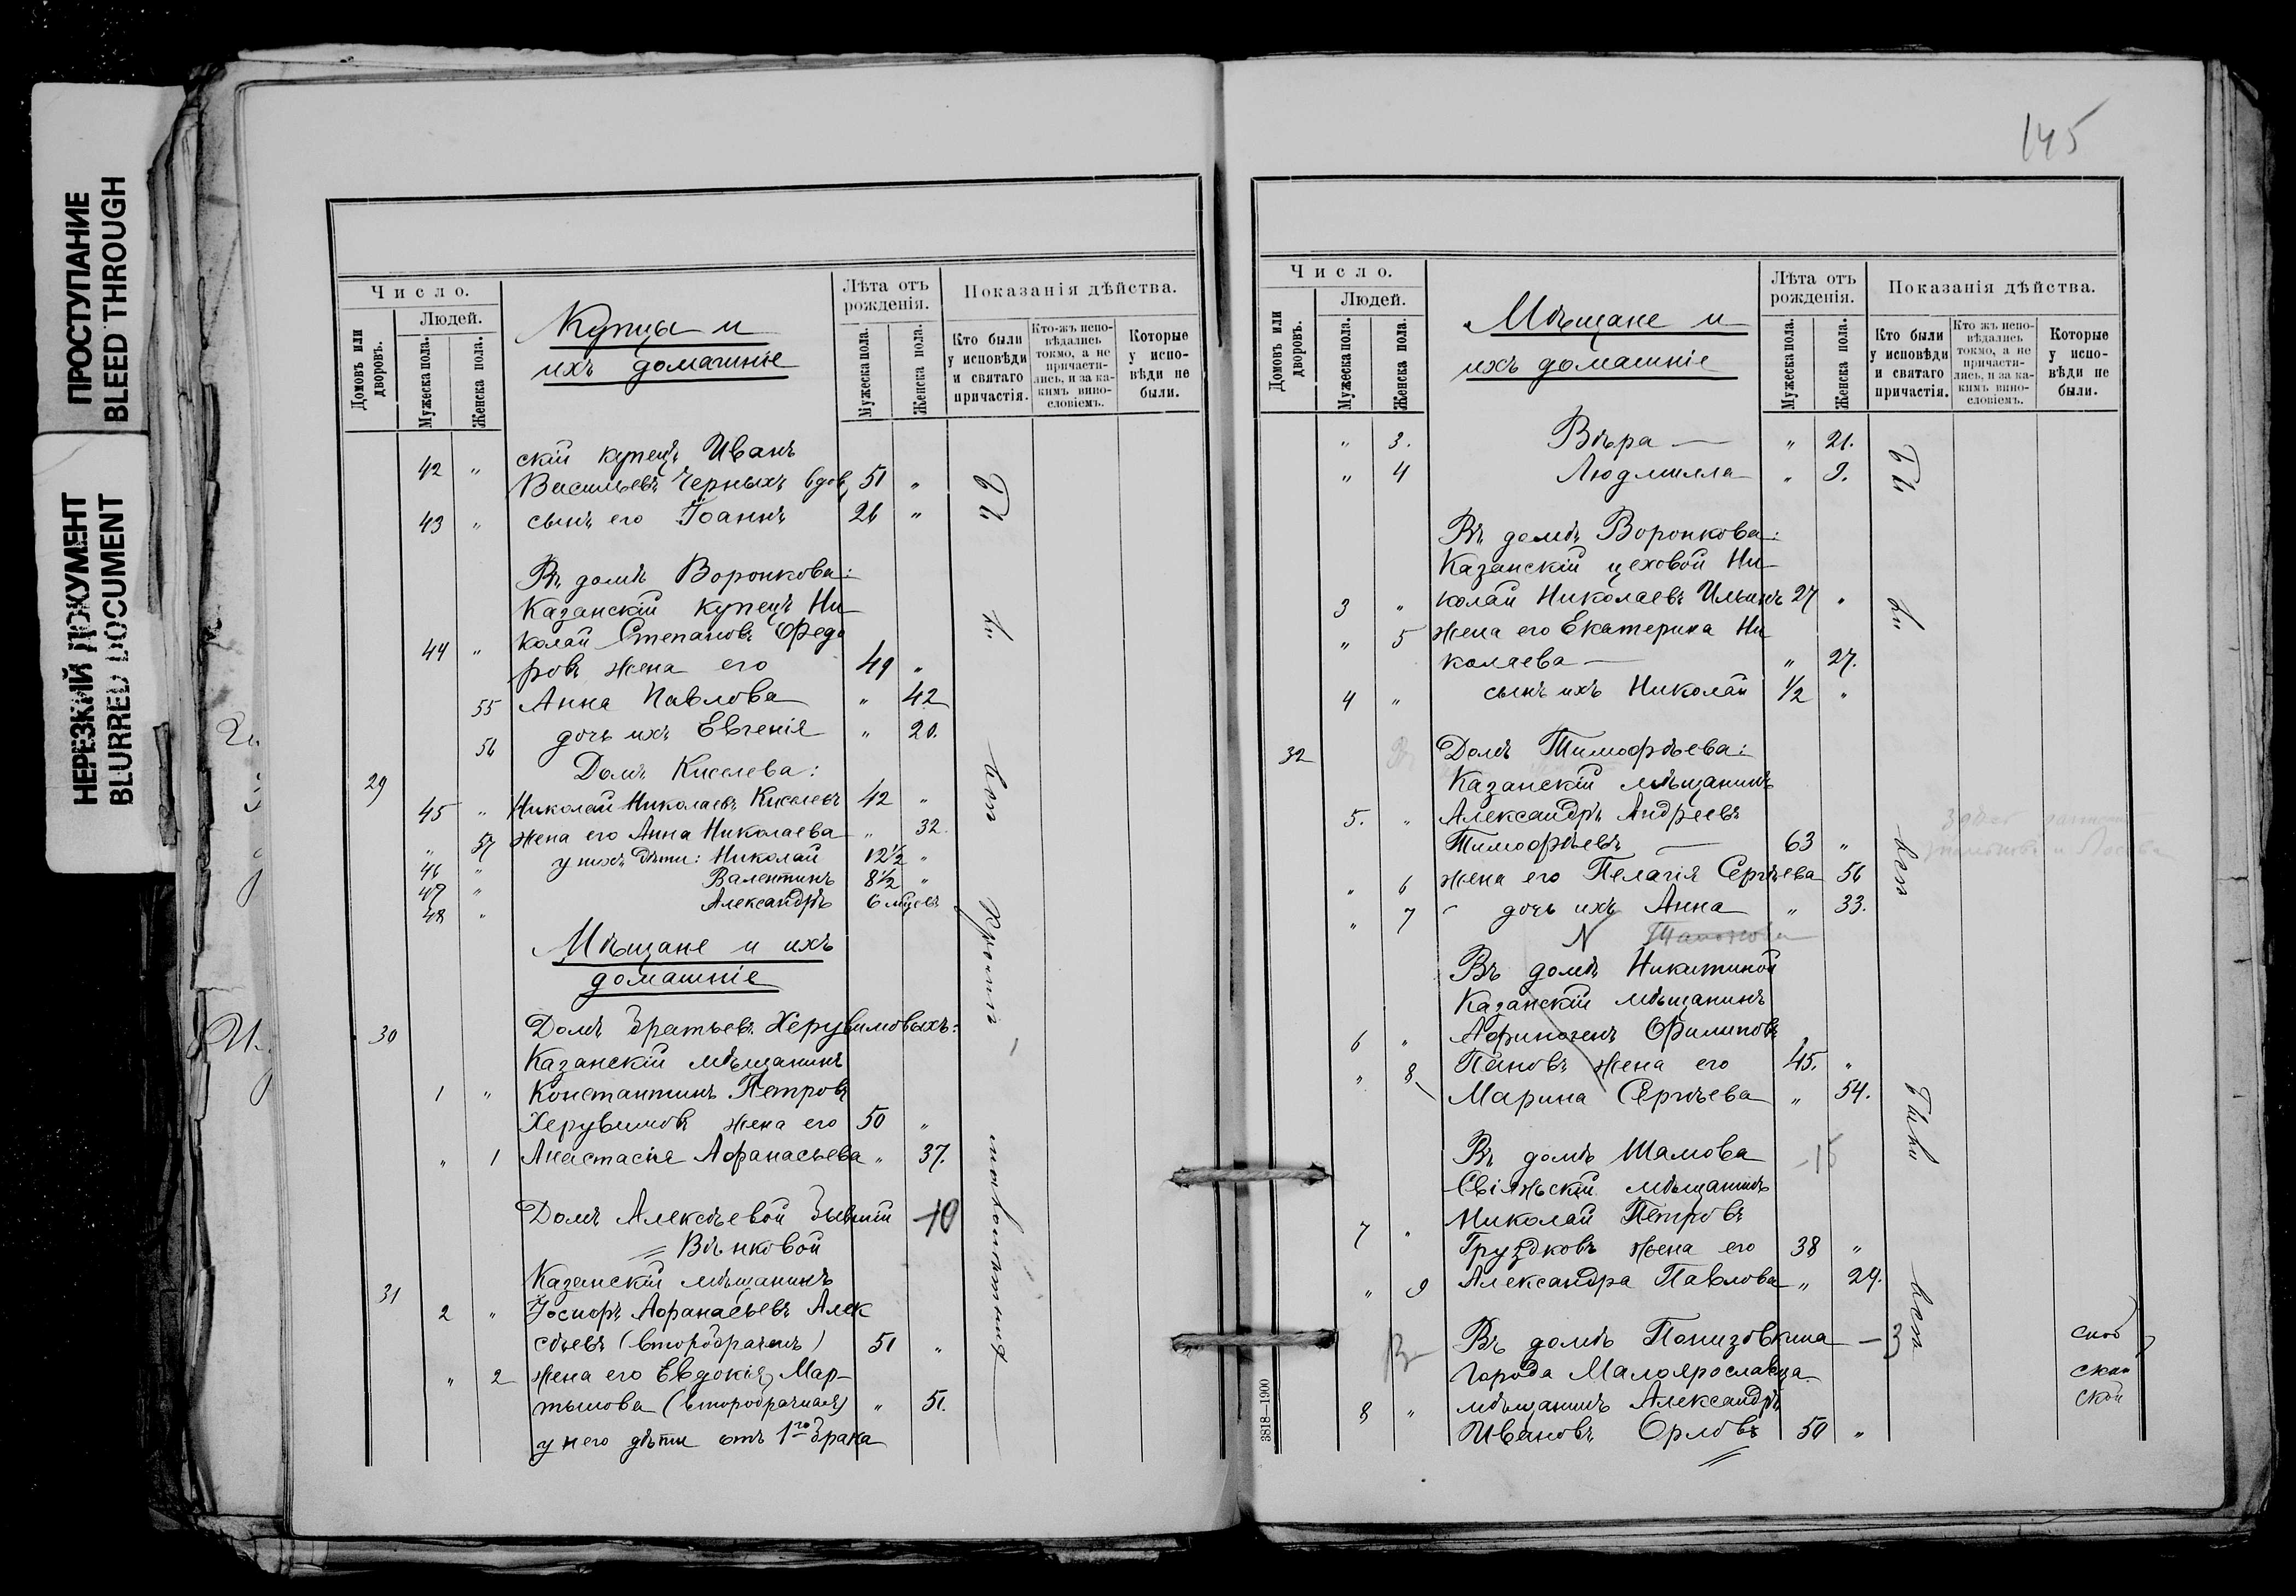 ПРОСТУПАНИЕ
BLEED THROUGH
НЕРЕЗКИЙ ДОКУМЕНТ
BLURRED DOCUMENT
Число.
Людей.
Домовъ или дворовъ.
Мужеска пола.
Женска пола.
Купцы и
ихъ домашніе
Лѣта отъ рожденія.
Мужеска пола.
Женска пола.
Показанія дѣйства.
Кто были у исповѣди и святаго причастія.
Кто-жъ исповѣдались токмо, а не причастились, и за какимъ винословіемъ.
Которые у исповѣди не были.
скій купецъ Иванъ
42 " Васильевъ Черныхъ вдов, 51 "
43 " сынъ его Іоаннъ 26 "
Въ домѣ Воронкова:
Казанскій купецъ Ни-
44 " колай Степановъ Ѳедо
ровъ жена его 49 "
55 Анна Павлова " 42
56 дочь ихъ Евгенія " 20.
29 Домъ Киселева:
45 " Николай Николаевъ Киселевъ 42 "
" 57 жена его Анна Николаева " 32.
46 " у нихъ дѣти: Николай 12½ "
47 " Валентинъ 8½ "
48 " Александръ 6 мцевъ
Мѣщане и ихъ
домашніе
30 Домъ братьевъ Херувимовыхъ:
Казанскій мѣщанинъ
1 " Константинъ Петровъ
Херувимовъ жена его 50 "
" 1 Анастасія Афанасьева " 37.
Домъ Алексѣевой бывшій 10
Вѣнковой
31 Казанскій мѣщанинъ
2 " Іосифъ Афанасьевъ Алек
сѣевъ (второбрачнъ) 51 "
" 2 жена его Евдокія Мар-
тынова (второбрачная) " 51.
у него дѣти отъ 1го брака
145
Число.
Людей.
Домовъ или дворовъ.
Мужеска пола.
Женска пола.
Мѣщане и
ихъ домашніе
Лѣта отъ рожденія.
Мужеска пола.
Женска пола.
Показанія дѣйства.
Кто были у исповѣди и святаго причастія.
Кто жъ исповѣдались токмо, а не причастились, и за какимъ винословіемъ.
Которые у исповѣди не были.
" 3. Вѣра " 21.
" 4 Людмилла " 9.
Въ домѣ Воронкова:
Казанскій цеховой Ни-
3 " колай Николаевъ Ильинъ 27 "
" 5 жена его Екатерина Ни
колаева " 27.
4 " сынъ ихъ Николай ½ "
32 Домъ Тимофѣева:
Казанскій мѣщанинъ
5. " Александръ Андреевъ
Тимофѣевъ 63 "
" 6 жена его Пелагія Сергѣева 56
" 7 дочь ихъ Анна " 33.
Въ домѣ Никитиной
Казанскій мѣщанинъ
6 " Афиногенъ Филиповъ
" 8 Пановъ жена его 45. "
Марина Сергѣева " 54.
Въ домѣ Шамова 15
Свіяжскій мѣщанинъ
7 " Николай Петровъ
Груздковъ жена его 38 "
" 9 Александра Павлова " 29.
Въ домѣ Понизовкина 3
города Малоярославца
8 " мѣщанинъ Александръ
Ивановъ Орловъ 50 "
3818—1900